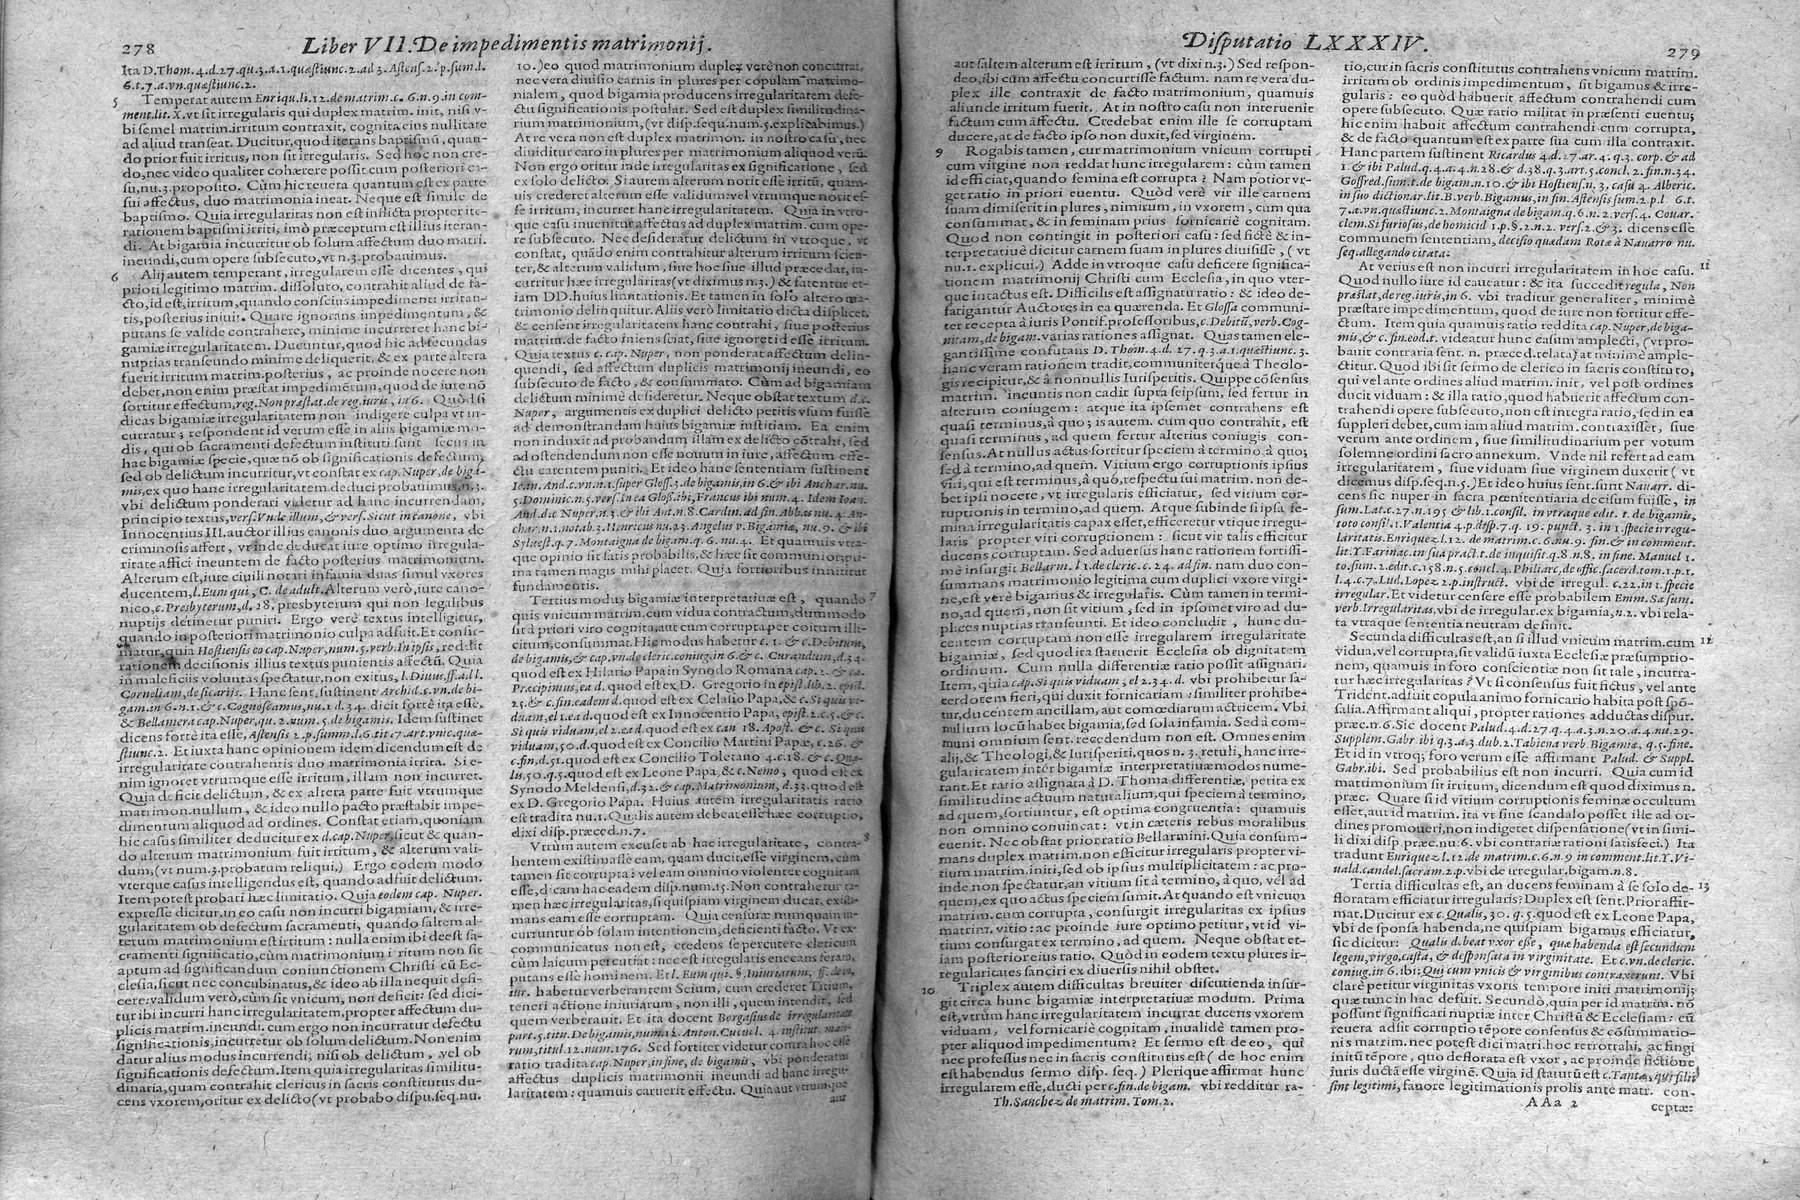 278
Liber VII. De impedimentis matrimonij.
Ita D.Thom.4.d.27.qu.3.a.1.quæstiunc.2.ad 3. Astens.2.p.sum.l.
6.t.7.a.vn.quæstiunc.2.
5 Temperat autem Enriqu.li.12.de matrim.c. 6.n.9.in com-
ment.lit.X.vt sit irregularis qui duplex matrim. init, nisi v-
bi semel matrim.irritum contraxit, cognita eius nullitate
ad aliud transeat. Ducitur,quod iterans baptismũ, quan-
do prior fuit irritus, non sit irregularis. Sed hoc non cre-
do,nec video qualiter cohærere possit cum posteriori ca-
su,nu.3.proposito. Cùm hic reuera quantum est ex parte
sui affectus, duo matrimonia ineat. Neque est simile de
baptismo. Quia irregularitas non est inflicta propter ite-
rationem baptismi irriti, imò præceptum est illius iteran-
di. At bigamia incurritur ob solum affectum duo matri.
ineundi,cum opere subsecuto,vt n.3.probauimus.
6 Alij autem temperant, irregularem esse dicentes, qui
priori legitimo matrim. dissoluto, contrahit aliud de fa-
cto,id est,irritum,quando conscius impedimenti irritan-
tis,posterius iniuit. Quare ignorans impedimentum, &
putans se valide contrahere, minime incurreret hanc bi-
gamiæ irregularitatem. Ducuntur,quod hic ad secundas
nuptias transeundo minime deliquerit, & ex parte altera
fuerit irritum matrim.posterius, ac proinde nocere non
debet,non enim præstat impedimẽtum,quod de iure nõ
sortitur effectum,reg.Non præstat.de reg.iuris , in 6. Quòd si
dicas bigamiæ irregularitatem non indigere culpa vt in-
curratur; respondent id verum esse in aliis bigamiæ mo-
dis , qui ob sacramenti defectum instituti sunt secus in
hac bigamiæ specie, quæ nõ ob significationis defectum,
sed ob delictum incurritur,vt constat ex cap.Nuper,de biga-
mis,ex quo hanc irregularitatem deduci probauimus,n.3.
vbi delictum ponderari videtur ad hanc incurrendam,
principio textus,vers.Vnde illum,& vers.Sicut in canone, vbi
Innocentius III.auctor illius canonis duo argumenta de
criminosis affert, vt inde deducat iure optimo irregula-
ritate affici ineuntem de facto posterius matrimonium.
Alterum est,iure ciuili notari infamia duas simul vxores
ducentem,l.Eum qui , C. de adult.Alterum verò,iure cano-
nico,c.Presbyterum,d. 28. presbyterum qui non legalibus
nuptijs detinetur puniri. Ergo verè textus intelligitur,
quando in posteriori matrimonio culpa adfuit.Et confir-
matur,quia Hostiensis eo cap.Nuper,num.5.verb.In ipsis, reddit
rationem decisionis illius textus punientis affectũ, Quia
in maleficiis voluntas spectatur,non exitus, l.Diuus,ff.ad l.
Corneliam,de sicariis. Hanc sent.sustinent Archid.c.vn.de bi-
gam.in 6.n.1.& c.Cognoscamus,nu.1 d.34. dicit fortè ita esse,
& Bellamera cap.Nuper,qu. 2.num.5 de bigamis. Idem sustinet
dicens fortè ita esse, Astensis 2.p.summ.l.6.tit.7.art.vnic.quæ-
stiunc.2. Et iuxta hanc opinionem idem dicendum est de
irregularitate contrahentis duo matrimonia irrita. Si e-
nim ignoret vtrumque esse irritum, illam non incurret.
Quia deficit delictum, & ex altera parte fuit vtrumque
matrim.nullum , & ideo nullo pacto præstabit impe-
dimentum aliquod ad ordines. Constat etiam, quoniam
hic casus similiter deducitur ex d.cap.Nuper,sicut & quan-
do alterum matrimonium fuit irritum , & alterum vali-
dum,(vt num.3.probatum reliqui.) Ergo eodem modo
vterque casus intelligendus est, quando adfuit delictum.
Item potest probari hæc limitatio. Quia eodem cap. Nuper.
expresse dicitur,in eo casu non incurri bigamiam,& irre-
gularitatem ob defectum sacramenti, quando saltem al-
terum matrimonium est irritum : nulla enim ibi deest sa-
cramenti significatio,cùm matrimonium irritum non sit
aptum ad significandum coniunctionem Christi cũ Ec-
clesia,sicut nec concubinatus,& ideo ab illa nequit defi-
cere:validum verò,cùm sit vnicum, non deficit: sed dici-
tur ibi incurri hanc irregularitatem,propter affectum du-
plicis matrim.ineundi. cum ergo non incurratur defectu
significationis,incurretur ob solum delictum.Non enim
datur alius modus incurrendi, nisi ob delictum , vel ob
significationis defectum.Item quia irregularitas similitu-
dinaria,quam contrahit clericus in sacris constitutus du-
cens vxorem,oritur ex delicto(vt probabo dispu.seq.nu.
10.)eo quod matrimonium duplex verè non concurrat,
nec vera diuisio carnis in plures per copulam matrimo-
nialem, quod bigamia producens irregularitatem defe-
ctu significationis postulat. Sed est duplex similitudina-
rium matrimonium,(vt disp.sequ.num.5.explicabimus.)
At re vera non est duplex matrimon. in nostro casu, nec
diuiditur caro in plures per matrimonium aliquod verũ.
Non ergo oritur inde irregularitas ex significatione, sed
ex solo delicto. Si autem alterum norit esse irritũ, quam-
uis crederet alterum esse validum:vel vtrumque norit es-
se irritum, incurret hanc irregularitatem. Quia in vtro-
que casu inuenitur affectus ad duplex matrim. cum ope-
re subsecuto. Nec desideratur delictum in vtroque, vt
constat, quãdo enim contrahitur alterum irritum scien-
ter,& alterum validum, siue hoc siue illud præcedat,in-
curritur hæc irregularitas(vt diximus n.3.) & fatentur et-
iam DD.huius limitationis. Et tamen in solo altero ma-
trimonio delinquitur. Aliis verò limitatio dicta displicet,
& censent irregularitatem hanc contrahi, siue posterius
matrim.de facto iniens sciat, siue ignoret id esse irritum.
Quia textus c. cap. Nuper, non ponderat affectum delin-
quendi, sed affectum duplicis matrimonij ineundi, eo
subsecuto de facto, & consummato. Cùm ad bigamiam
delictum minimè desideretur. Neque obstat textum d.c.
Nuper, argumentis ex duplici delicto petitis vsum fuisse
ad demonstrandam huius bigamiæ iustitiam. Ea enim
non induxit ad probandum illam ex delicto cõtrahi, sed
ad ostendendum non esse nouum in iure, affectum effe-
ctu carentem puniri. Et ideo hanc sententiam sustinent
Ioan.And.c.vn.n.1.super Gloss.3.de bigamis,in 6.& ibi Anchar.nu.
5.Dominic.n.5.vers.In ea Gloss.ibi, Francus ibi num.4. Idem Ioan.
And.d.c Nuper,n.3.& ibi Ant.n.8.Cardin.ad fin.Abbas nu.4. An-
char.n.1.notab.3.Henricus nu.23.Angelus v. Bigamiæ, nu.9. & ibi
Syluest.q.7.Montaigna de bigam.q. 6. nu.4. Et quamuis vtra-
que opinio sit satis probabilis,& hæc sit communior;pri-
ma tamen magis mihi placet. Quia fortioribus innititur
fundamentis.
Tertius modus bigamiæ interpretatiuæ est , quando 7
quis vnicum matrim.cum vidua contractum,dummodo
sit à priori viro cognita,aut cum corrupta per coitum illi-
citum,consummat. Hic modus habetur c. 1. & c.Debitum,
de bigamis,& cap.vn.de cleric.coniug.in 6.& c. Curandum,d.34.
quod est ex Hilario Papa in Synodo Romana cap.2. & ca.
Præcipimus,ea d. quod est ex D. Gregorio in epist.lib.2. epist.
25.& c.fin.eadem d.quod est ex Celasio Papa,& c.Si quis vi-
duam,el 1.ea d.quod est ex Innocentio Papa, epist.2.c.5.& c.
Si quis viduam,el 2.ea d. quod est ex can 18. Apost. & c. Si quis
viduam,50.d.quod est ex Concilio Martini Papæ, c.26. &
c.fin,d.51.quod est ex Concilio Toletano 4.c.18. & c.Qua-
lis,50.q.5.quod est ex Leone Papa,& c.Nemo , quod est ex
Synodo Meldensi,d.32.& cap.Matrimonium, d.33.quod est
ex D. Gregorio Papa. Huius autem irregularitatis ratio
est tradita nu.1.Qualis autem debeat esse hæc corruptio,
dixi disp.præced.n.7.
8
Vtrùm autem excuset ab hac irregularitate, contra-
hentem existimasse eam, quam ducit,esse virginem, cùm
tamen sit corrupta : vel eam omnino violenter cognitam
esse,dicam hac eadem disp.num.15.Non contrahetur ta-
men hæc irregularitas,si quispiam virginem ducat, existi-
mans eam esse corruptam. Quia censuræ numquam in-
curruntur ob solam intentionem,deficienti facto. Vt ex-
communicatus non est, credens se percutere clericum
cùm laicum percutiat : nec est irregularis enecans feram,
putans esse hominem. Et l. Eum qui. §.Iniuriarum, ff. de in-
iur. habetur verberantem Seium, cum crederet Titium,
teneri actione iniuriarum, non illi , quem intendit, sed
quem verberauit. Et ita docent Borgasius de irregularitate
part.5.titu.De bigamis,num.12. Anton.Cutuel. 4. institut. mai-
rum,titul.12.num.176. Sed fortiter videtur contra hoc esse
ratio tradita cap.Nuper,in fine, de bigamis , vbi ponderatur
affectus duplicis matrimonii ineundi ad hanc irregu-
laritatem : quamuis caruerit effectu. Quia aut vtrumque
aut
Disputatio LXXXIV.
279
aut saltem alterum est irritum , (vt dixi n.3.) Sed respon-
deo,ibi cum affectu concurrisse factum. nam re vera du-
plex ille contraxit de facto matrimonium, quamuis
aliunde irritum fuerit. At in nostro casu non interuenit
factum cum affectu. Credebat enim ille se corruptam
ducere,at de facto ipso non duxit,sed virginem.
9 Rogabis tamen, cur matrimonium vnicum corrupti
cum virgine non reddat hunc irregularem : cùm tamen
id efficiat,quando femina est corrupta ? Nam potior vr-
get ratio in priori euentu. Quòd verè vir ille carnem
suam dimiserit in plures, nimirum , in vxorem , cum qua
consummat, & in feminam prius fornicariè cognitam.
Quod non contingit in posteriori casu : sed fictè & in-
terpretatiuè dicitur carnem suam in plures diuisisse , ( vt
nu.1. explicui.) Adde in vtroque casu deficere significa-
tionem matrimonij Christi cum Ecclesia, in quo vter-
que intactus est. Difficilis est assignatu ratio : & ideo de-
fatigantur Auctores in ea quærenda. Et Glossa communi-
ter recepta à iuris Pontif.professoribus,c.Debitũ,verb.Cog-
nitam,de bigam.varias rationes assignat. Quas tamen ele-
gantissime confutans D. Thom.4.d. 27. q.3.a.1.quæstiunc.3.
hanc veram rationem tradit,communiterque à Theolo-
gis recipitur,& à nonnullis Iurisperitis. Quippe cõsensus
matrim. ineuntis non cadit supra seipsum, sed fertur in
alterum coniugem : atque ita ipsemet contrahens est
quasi terminus,à quo ; is autem. cum quo contrahit, est
quasi terminus , ad quem fertur alterius coniugis con-
sensus. At nullus actus sortitur speciem à termino,à quo;
sed à termino,ad quem. Vitium ergo corruptionis ipsius
viri,qui est terminus,à quo,respectu sui matrim. non de-
bet ipsi nocere, vt irregularis efficiatur, sed vitium cor-
ruptionis in termino,ad quem. Atque subinde si ipsa fe-
mina irregularitatis capax esset,efficeretur vtique irregu-
laris propter viri corruptionem : sicut vir talis efficitur
ducens corruptam. Sed aduersus hanc rationem fortissi-
mè insurgit Bellarm. l 1.de cleric.c.24. ad fin. nam duo con-
summans matrimonio legitima cum duplici vxore virgi-
ne,est verè bigamus & irregularis. Cùm tamen in termi-
no,ad quem, non sit vitium , sed in ipsomet viro ad du-
plices nuptias transeunti. Et ideo concludit , hunc du-
centem corruptam non esse irregularem irregularitate
bigamiæ, sed quod ita statuerit Ecclesia ob dignitatem
ordinum. Cum nulla differentiæ ratio possit assignari.
Item,quia cap.Si quis viduam, el 2.34.d. vbi prohibetur sa-
cerdotem fieri, qui duxit fornicariam : similiter prohibe-
tur,ducentem ancillam, aut comœdiarum actricem. Vbi
nullum locũ habet bigamia,sed sola infamia. Sed à com-
muni omnium sent. recedendum non est. Omnes enim
alij,& Theologi,& Iurisperiti,quos n. 3. retuli, hanc irre-
gularitatem intèr bigamiæ interpretatiuæ modos nume-
rant.Et ratio assignata à D. Thoma differentiæ, petita ex
similitudine actuum naturalium,qui speciem à termino,
ad quem,sortiuntur, est optima congruentia : quamuis
non omnino conuincat : vt in cæteris rebus moralibus
euenit. Nec obstat prior ratio Bellarmini.Quia consum-
mans duplex matrim.non efficitur irregularis propter vi-
tium matrim.initi, sed ob ipsius multiplicitatem : ac pro-
inde non spectatur,an vitium sit à termino, à quo, vel ad
quem,ex quo actus speciem sumit.At quando est vnicum
matrim. cum corrupta , consurgit irregularitas ex ipsius
matrim. vitio : ac proinde iure optimo petitur, vt id vi-
tium consurgat ex termino, ad quem. Neque obstat et-
iam posterior eius ratio. Quòd in eodem textu plures ir-
regularitates sanciri ex diuersis nihil obstet.
10 Triplex autem difficultas breuiter discutienda insur-
git circa hunc bigamiæ interpretatiuæ modum. Prima
est,vtrùm hanc irregularitatem incurrat ducens vxorem
viduam, vel fornicariè cognitam, inualidè tamen pro-
pter aliquod impedimentum? Et sermo est de eo, qui
nec professus nec in sacris constitutus est ( de hoc enim
est habendus sermo disp. seq. ) Plerique affirmant hunc
irregularem esse,ducti per c.fin.de bigam. vbi redditur ra-
Th.Sanchez de matrim. Tom.2.
tio,cur in sacris constitutus contrahens vnicum matrim.
irritum ob ordinis impedimentum , sit bigamus & irre-
gularis : eo quòd habuerit affectum contrahendi cum
opere subsecuto. Quæ ratio militat in præsenti euentu;
hic enim habuit affectum contrahendi cum corrupta,
& de facto quantum est ex parte sua cum illa contraxit.
Hanc partem sustinent Ricardus 4.d.27.ar.4.q.3. corp.& ad
1 & ibi Palud.q.4.a.4.n.28.& d.38.q.3.art.5.concl. 2.fin.n.34.
Goffred.sum.t.de bigam.n.10.& ibi Hostiens.n. 3. casu 4. Alberic.
in suo dictionar.lit.B.verb.Bigamus, in fin.Astensis sum.2.p.l 6.t.
7.a.vn.quæstiunc.2.Montaigna de bigam.q.6.n.2.vers.4. Couar.
clem.Si furiosus,de homicid 1.p.§.2.n.2. vers.2.& 3. dicens esse
communem sententiam, decisio quædam Rotæ à Nauarro nu.
seq.allegando citata.
At verius est non incurri irregularitatem in hoc casu. 11
Quod nullo iure id caueatur : & ita succedit regula , Non
præstat,de reg.iuris,in 6. vbi traditur generaliter, minimè
præstare impedimentum, quod de iure non sortitur effe-
ctum. Item quia quamuis ratio reddita cap.Nuper,de biga-
mis,& c.fin.eod.t. videatur hunc casum amplecti, (vt pro-
bauit contraria sent. n. præced.relata) at minimè ample-
ctitur. Quod ibi sit sermo de clerico in sacris constituto,
qui vel ante ordines aliud matrim. init, vel post ordines
ducit viduam : & illa ratio,quod habuerit affectum con-
trahendi opere subsecuto,non est integra ratio, sed in ea
suppleri debet,cum iam aliud matrim.contraxisset, siue
verum ante ordinem, siue similitudinarium per votum
solemne ordini sacro annexum. Vnde nil refert ad eam
irregularitatem , siue viduam siue virginem duxerit ( vt
dicemus disp.seq.n.5.)Et ideo huius sent.sunt Nauarr. di-
cens sic nuper in sacra pœnitentiaria decisum fuisse, in
sum.Lat.c.27.n.195 & lib.1.consil. in vtraque edit. t. de bigamis,
toto consil.1.Valentia 4.p.disp.7.q. 19. punct. 3. in 1.specie irregu-
laritatis.Enriquez l.12. de matrim. c.6.nu.9. fin.& in comment.
lit.Y.Farinac.in sua pract.t.de inquisit.q.8.n.8. in fine. Manuel 1.
to.sum.2.edit.c.158.n.5.concl.4.Philiarc,de offic.sacerd.tom.1.p.1.
l.4.c.7.Lud.Lopez 2.p.instruct. vbi de irregul. c.22.in 1.specie
irregular.Et videtur censere esse probabilem Emm.Sa sum.
verb.Irregularitas,vbi de irregular.ex bigamia,n.2. vbi rela-
ta vtraque sententia neutram definit.
Secunda difficultas est,an si illud vnicum matrim.cum 12
vidua,vel corrupta,sit validũ iuxta Ecclesiæ præsumptio-
nem, quamuis in foro conscientiæ non sit tale , incurra-
tur hæc irregularitas ? Vt si consensus fuit fictus , vel ante
Trident.adfuit copula animo fornicario habita post spõ-
salia.Affirmant aliqui , propter rationes adductas disput.
præc.n.6.Sic docent Palud.4.d.27.q.4.a.3.n.20.d.4.nu.29.
Supplem.Gabr.ibi q.3.a.3.dub.2.Tabiena verb.Bigamiæ, q.5.fine.
Et id in vtroq; foro verum esse affirmant Palud. & Suppl.
Gabr.ibi. Sed probabilius est non incurri. Quia cum id
matrimonium sit irritum, dicendum est quod diximus n.
præc. Quare si id vitium corruptionis feminæ occultum
esset,aut id matrim. ita vt sine scandalo posset ille ad or-
dines promoueri,non indigeret dispensatione(vt in simi-
li dixi disp.præc.nu.6. vbi contrariæ rationi satisfeci.) Ita
tradunt Enriquez l.12.de matrim.c.6.n.9 in comment.lit.Y.Vi-
uald.candel.sacram.2.p.vbi de irregular.bigam.n.8.
Tertia difficultas est, an ducens feminam à se solo de- 13
floratam efficiatur irregularis? Duplex est sent. Prior affir-
mat.Ducitur ex c.Qualis,30. q. 5.quod est ex Leone Papa,
vbi de sponsa habenda,ne quispiam bigamus efficiatur,
sic dicitur: Qualis d.beat vxor esse, quæ habenda est secundum
legem,virgo,casta, & desponsata in virginitate. Et c.vn.de cleric.
coniug.in 6.ibi:Qui cum vnicis & virginibus contraxerunt. Vbi
clarè petitur virginitas vxoris tempore initi matrimonij;
quæ tunc in hac desuit. Secundò,quia per id matrim. nõ
possunt significari nuptiæ inter Christũ & Ecclesiam : cũ
reuera adsit corruptio tẽpore consensus & cõsummatio-
nis matrim. nec potest dici matri.hoc retrotrahi, ac fingi
initũ tẽpore, quo deflorata est vxor, ac proinde fictione
iuris ductã esse virginẽ. Quia id statutũ est c.Tanta, qui filij
sint legitimi, fauore legitimationis prolis ante matr. con-
AAa 2
ceptæ: